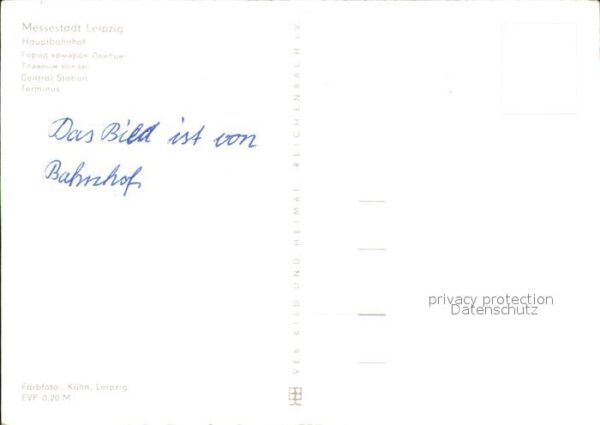 Messestadt Leipzig
Hauptbahnhof
Город ярмарок Лейпциг
Главный вокзал
Central Station
Terminus
Das Bild ist von
Bahnhof
VEB BILD UND HEIMAT REICHENBACH I. V.
privacy protection
Datenschutz
Farbfoto: Kühn, Leipzig
EVP 0,20 M